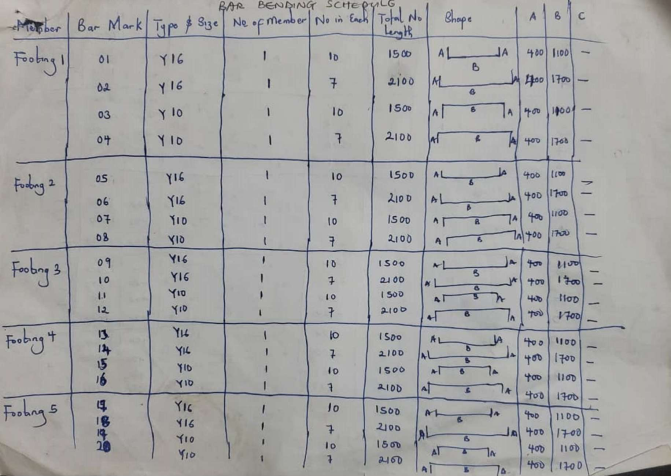 BAR BENDING SCHEDULE
Member Bar Mark Type & Size No of Member No in Each Total No Length Shape A B C
Footing 1 01 Y16 1 10 1500 A B A 400 1100 —
02 Y16 1 7 2100 A B A 400 1700 —
03 Y10 1 10 1500 A B A 400 1100 —
04 Y10 1 7 2100 A B A 400 1700 —
Footing 2 05 Y16 1 10 1500 A B A 400 1100 —
06 Y16 1 7 2100 A B A 400 1700 —
07 Y10 1 10 1500 A B A 400 1100 —
08 Y10 1 7 2100 A B A 400 1700 —
Footing 3 09 Y16 1 10 1500 A B A 400 1100 —
10 Y16 1 7 2100 A B A 400 1700 —
11 Y10 1 10 1500 A B A 400 1100 —
12 Y10 1 7 2100 A B A 400 1700 —
Footing 4 13 Y16 1 10 1500 A B A 400 1100 —
14 Y16 1 7 2100 A B A 400 1700 —
15 Y10 1 10 1500 A B A 400 1100 —
16 Y10 1 7 2100 A B A 400 1700 —
Footing 5 17 Y16 1 10 1500 A B A 400 1100 —
18 Y16 1 7 2100 A B A 400 1700 —
19 Y10 1 10 1500 A B A 400 1100 —
20 Y10 1 7 2100 A B A 400 1700 —